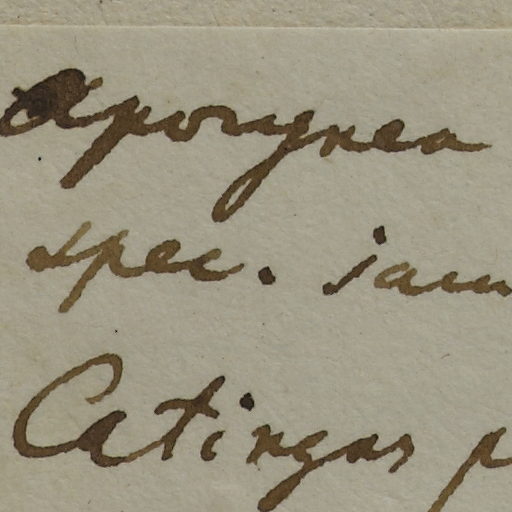 Apocynea
spec. jam
Catingas p